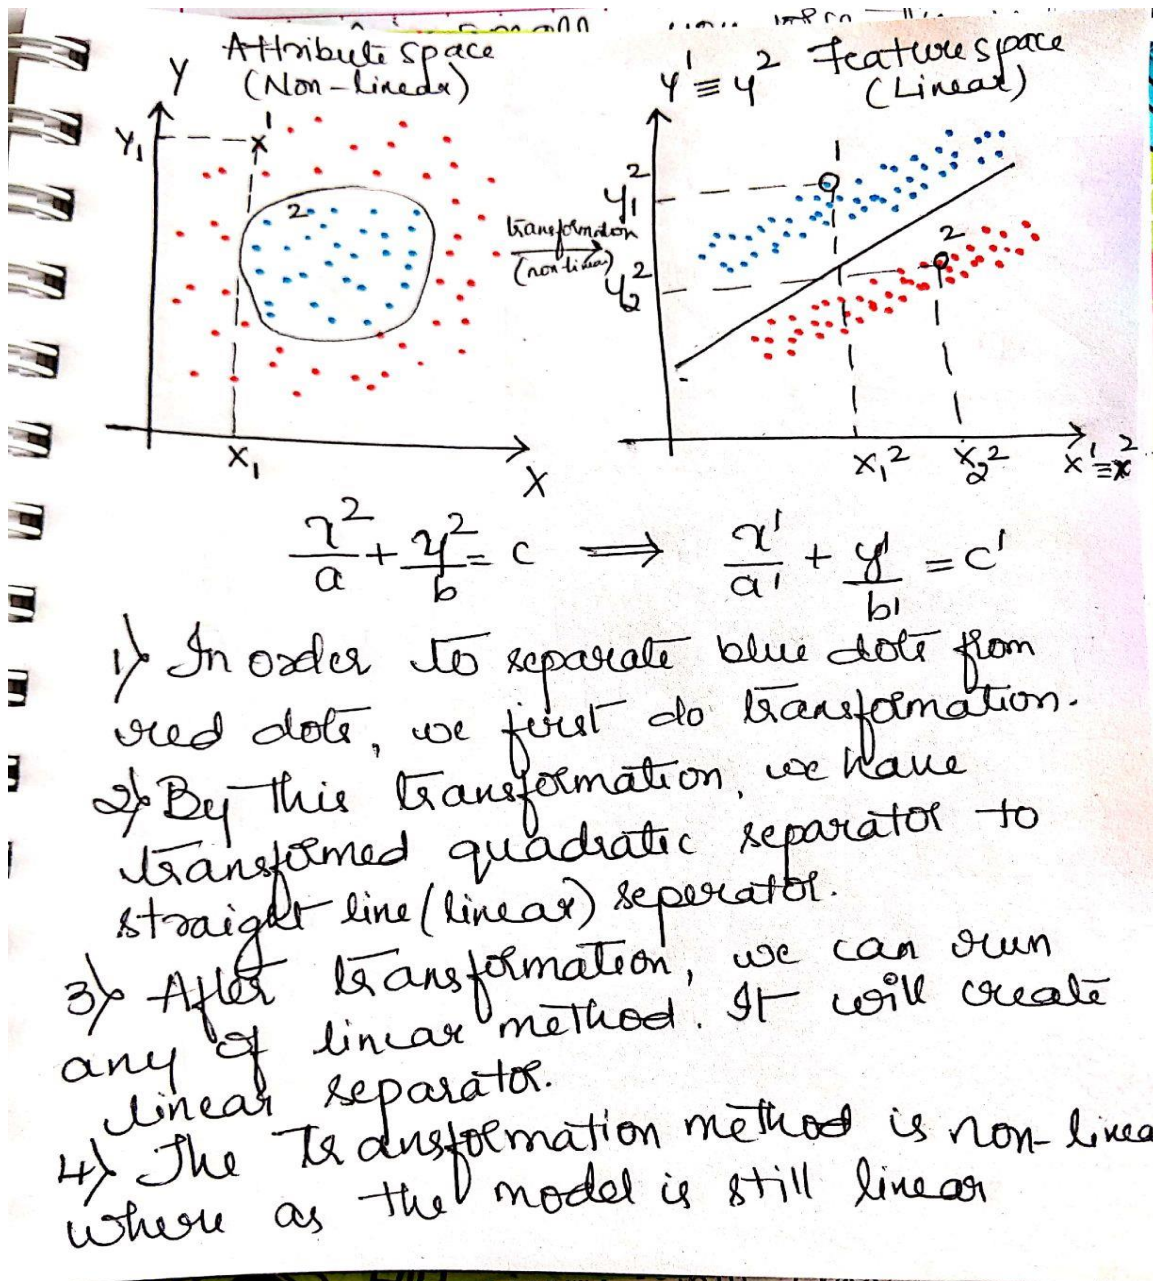 Attribute space
(Non-linear)
Y
Y₁
x
1
2
X₁
X
transformation
(non linear)
Feature space
(Linear)
y' ≡ y²
y₁²
y₂²
2
x₁²
x₂²
x' ≡ x²
x²/a + y²/b = c ⟹ x'/a' + y'/b' = c'
1) In order to separate blue dots from
red dots, we first do transformation.
2) By this transformation, we have
transformed quadratic separator to
straight line (linear) seperator.
3) After transformation, we can run
any of linear method. It will create
linear separator.
4) The transformation method is non-linea
where as the model is still linear